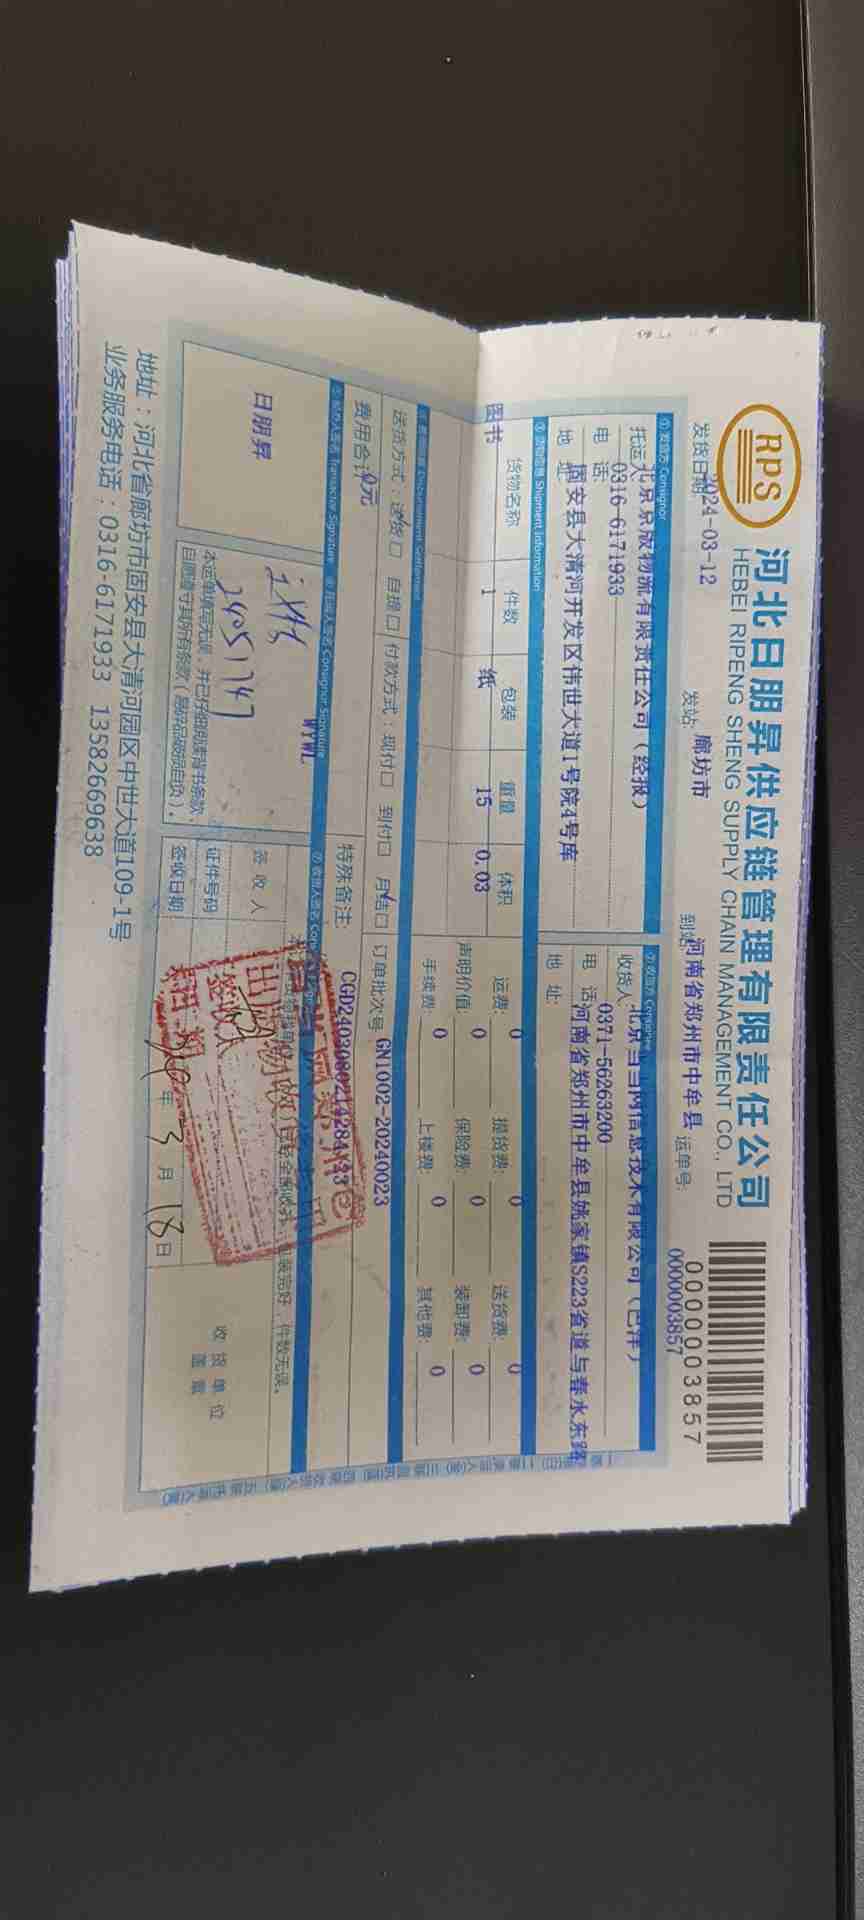 RPS
河北日朋昇供应链管理有限责任公司
HEBEI RIPENG SHENG SUPPLY CHAIN MANAGEMENT CO., LTD
0000003857
发货日期: 2024-03-12 发站: 廊坊市 到站: 河南省郑州市中牟县 运单号: 0000003857
①发货方 Consignor ②收货方 Consignee
托运人 北京京版物流有限责任公司（经报） 收货人: 北京当当网信息技术有限公司（巴洋）
电 话: 0316-6171933 电 话 0371-56263200
地 址: 固安县大清河开发区伟世大道1号院4号库 地 址: 河南省郑州市中牟县姚家镇S223省道与春水东路
③货物信息 Shipment Information
货物名称 件数 包装 重量 体积 运费: 0 提货费: 0 送货费: 0
图书 1 纸 15 0.03 声明价值: 0 保险费: 0 装卸费: 0
手续费: 0 上楼费: 0 其他费: 0
送货方式: 送货口 自提口 付款方式: 现付口 到付口 月结口 订单批次号 GN1002-20240023
费用合计 0元 特殊备注: CGD2403080214284123
Transactor Signature Consignor Signature
日朋昇
WYWL
24051747
本运单填写无误，并已仔细阅读背书条款，
签 收 人
证件号码
签收日期 年 3 月 18 日
包装完好，件数无误。
收 货 单 位
盖 章
地址：河北省廊坊市固安县大清河园区中世大道109-1号
业务服务电话：0316-6171933 13582669638